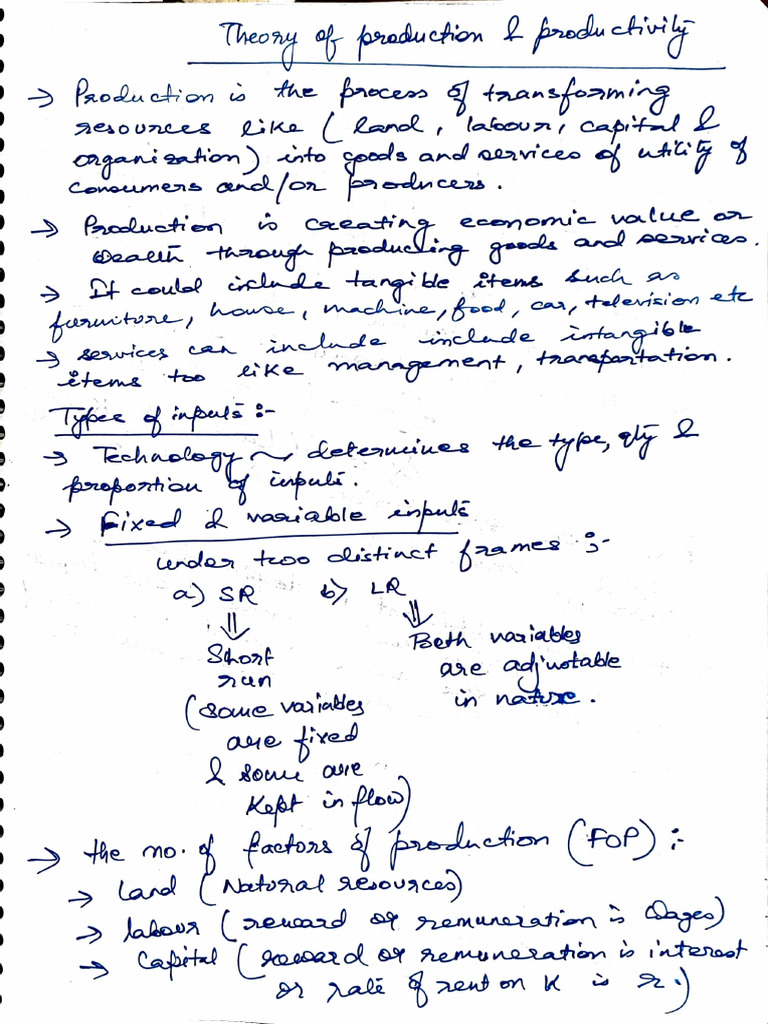 Theory of production & productivity
→ Production is the process of transforming
resources like (land, labour, capital &
organization) into goods and services of utility of
consumers and/or producers.
→ Production is creating economic value or
wealth through producting goods and services.
→ It could include tangible items such as
furniture, house, machine, food, car, television etc
→ services can include include intangible
items too like management, transportation.
Types of inputs :-
→ Technology ~ determines the type, qty &
proportion of inputs.
→ Fixed & variable inputs
under two distinct frames :-
a) SR b) LR
⇓ ⇓
Short
run
(some variables
are fixed
& some are
kept in flow)
Both variables
are adjustable
in nature.
→ the no. of factors of production (FOP) :-
→ Land (Natural resources)
→ labour (reward or remuneration is wages)
→ Capital (reward or remuneration is interest
or rate of rent on K is r.)